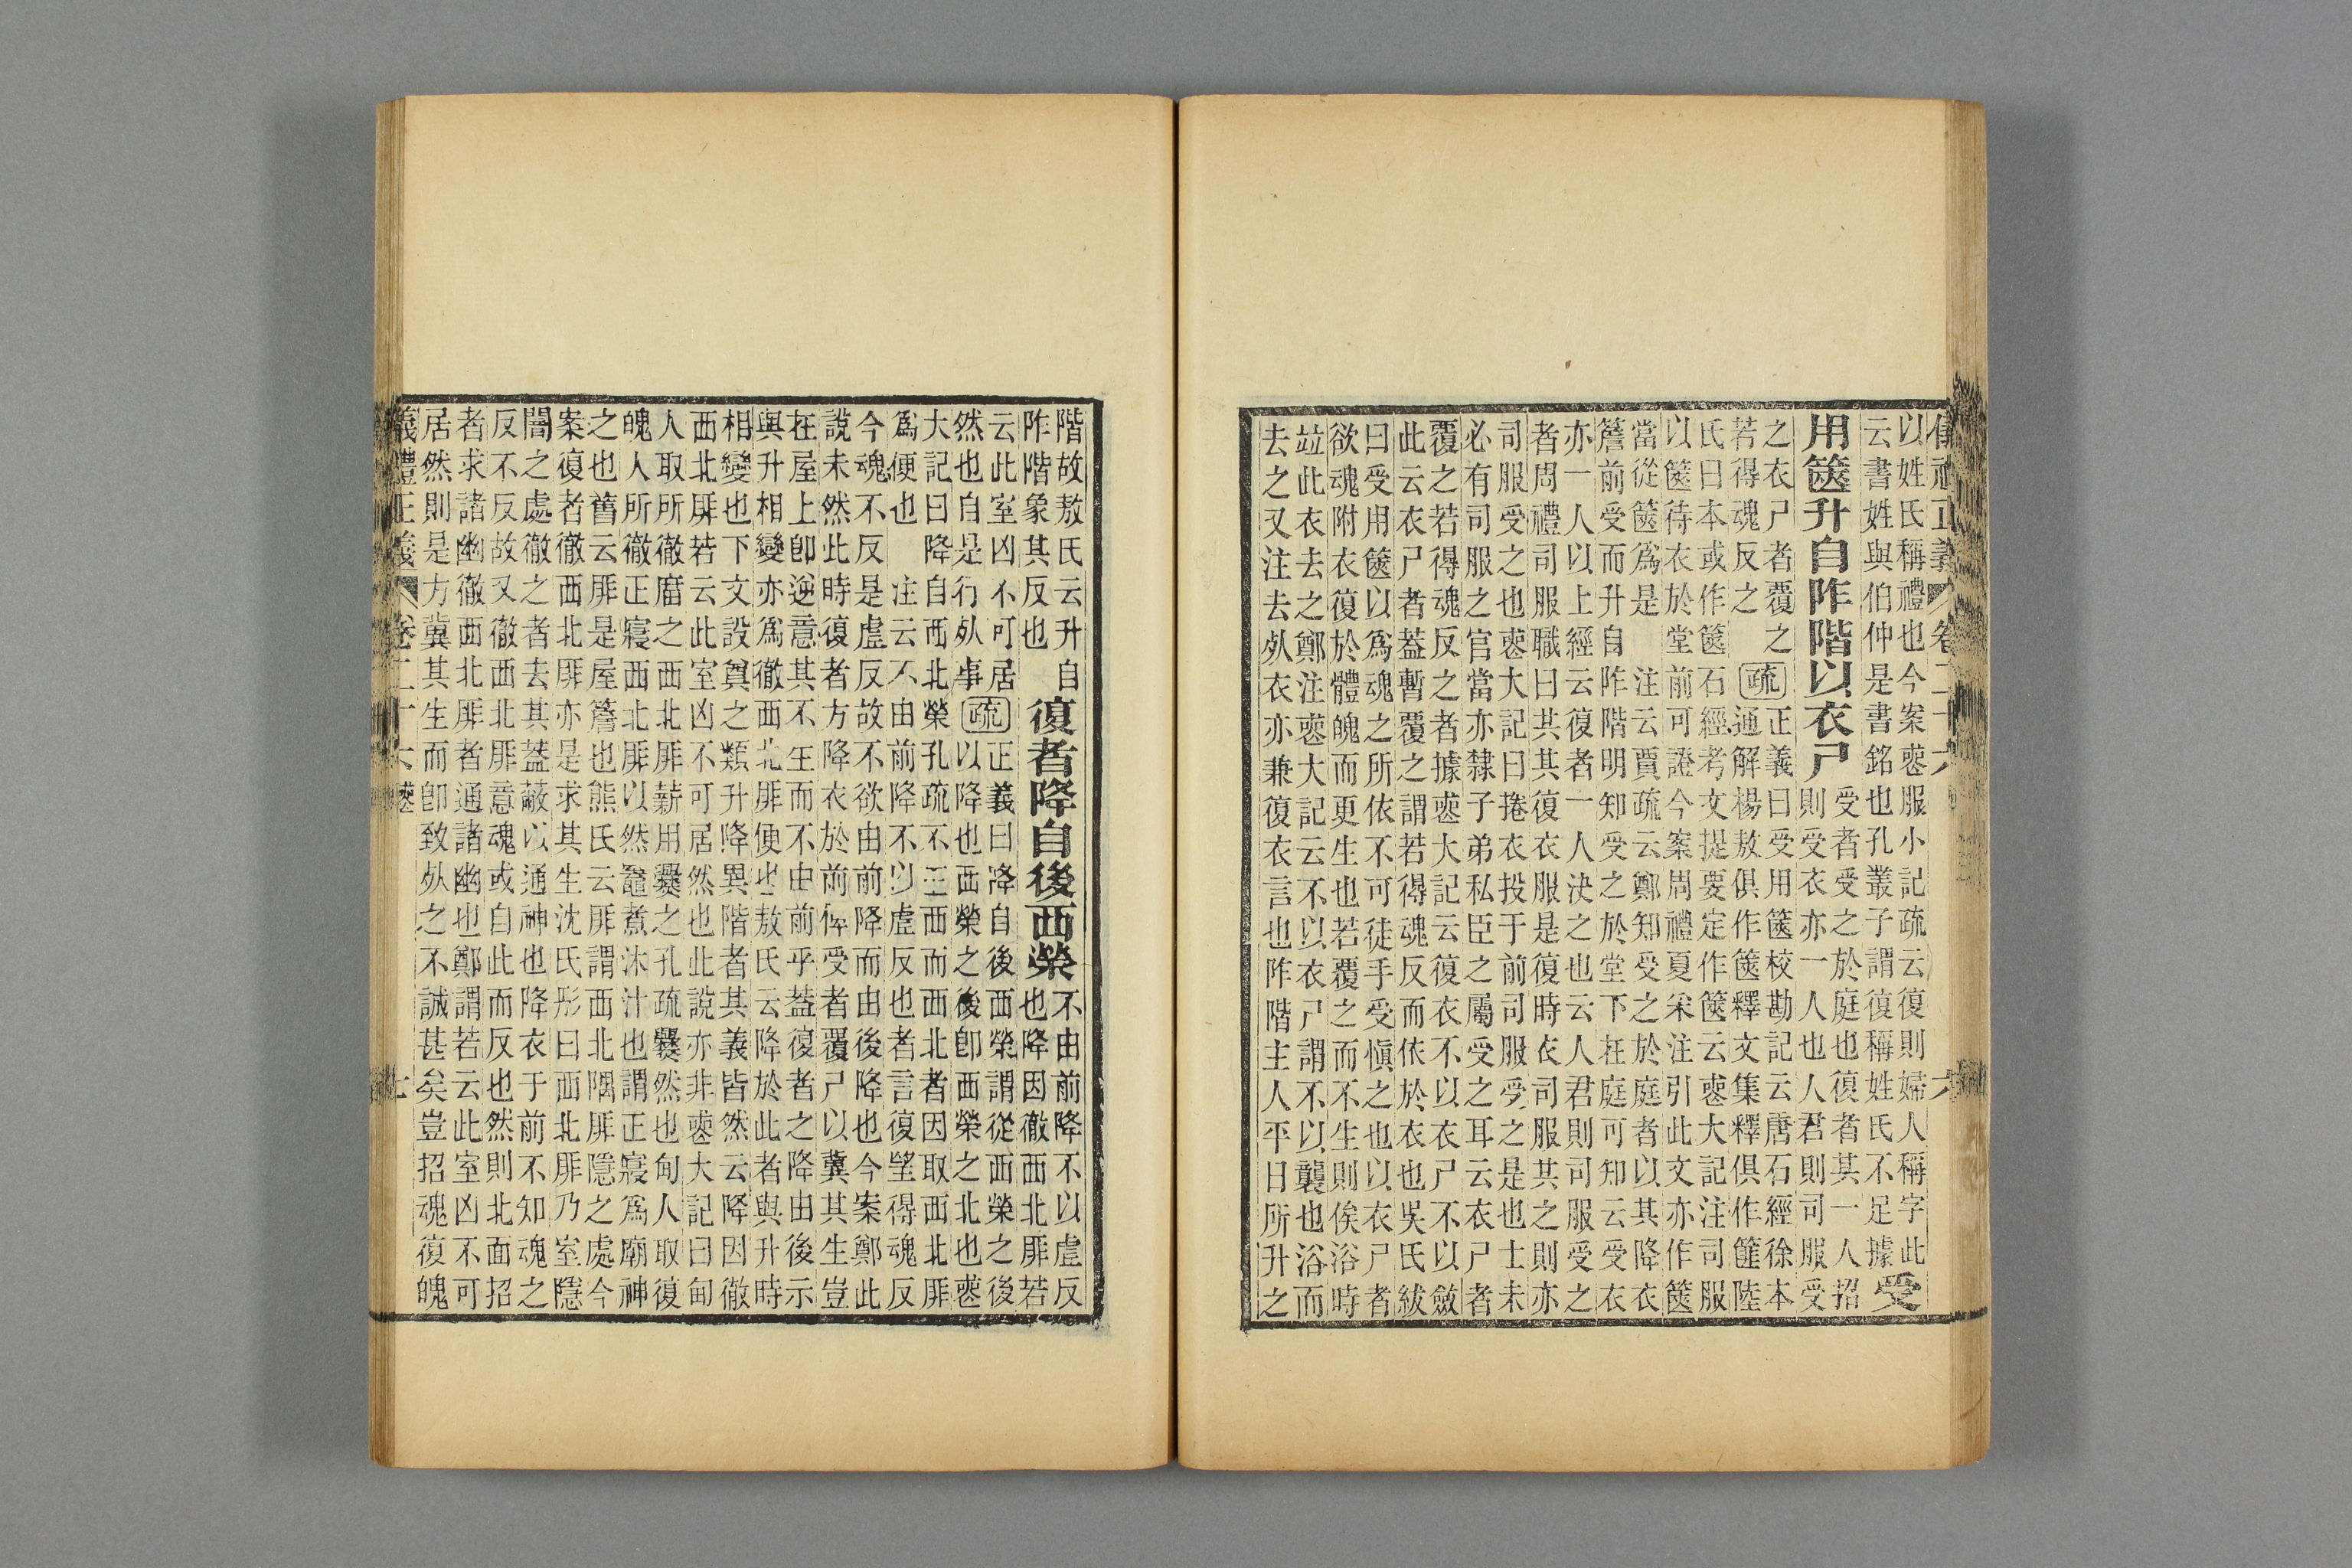 以姓氏稱禮也今案喪服小記疏云復則婦人稱字此
云書姓與伯仲是書銘也孔叢子謂復稱姓氏不足據
受
用篋升自阼階以衣尸
受者受之於庭也復者其一人招
則受衣亦一人也人君則司服受
之衣尸者覆之
若得魂反之
疏
正義曰受用篋校勘記云唐石經徐本
通解楊敖俱作篋釋文集釋俱作篚陸
氏曰本或作篋石經考文提要定作篋云喪大記注司服
以篋待衣於堂前可證今案周禮夏采注引此文亦作篋
當從篋爲是 注云賈疏云鄭知受之於庭者以其降衣
簷前受而升自阼階明知受之於堂下在庭可知云受衣
亦一人以上經云復者一人決之也云人君則司服受之
者周禮司服職曰共其復衣服是復時衣司服共之則亦
司服受之也喪大記曰捲衣投于前司服受之是也士未
必有司服之官當亦隸子弟私臣之屬受之耳云衣尸者
覆之若得魂反之者據喪大記云復衣不以衣尸不以斂
此云衣尸者蓋暫覆之謂若得魂反而依於衣也吳氏紱
曰受用篋以爲魂之所依不可徒手受愼之也以衣尸者
欲魂附衣復於體魄而更生也若覆之而不生則俟浴時
竝此衣去之鄭注喪大記云不以衣尸謂不以襲也浴而
去之又注去死衣亦兼復衣言也阼階主人平日所升之
階故敖氏云升自
阼階象其反也
復者降自後西榮
不由前降不以虛反
也降因徹西北厞若
云此室凶不可居
然也自是行死事
疏
正義曰降自後西榮謂從西榮之後
以降也西榮之後卽西榮之北也喪
大記曰降自西北榮孔疏不正西而西北者因取西北厞
爲便也 注云不由前降不以虛反也者言復望得魂反
今魂不反是虛反故不欲由前降而由後降也今案鄭此
說未然此時復者方降衣於前俾受者覆尸以冀其生豈
在屋上卽逆意其不生而不由前乎蓋復者之降由後示
與升相變亦爲徹西北厞便也敖氏云降於此者與升時
相變也下文設奠之類升降異階者其義皆然云降因徹
西北厞若云此室凶不可居然也此說亦非喪大記曰甸
人取所徹庿之西北厞薪用爨之孔疏爨然也甸人取復
魄人所徹正寢西北厞以然竈煮沐汁也謂正寢爲廟神
之也舊云厞是屋簷也熊氏云厞謂西北隅厞隱之處今
案復者徹西北厞亦是求其生沈氏彤曰西北厞乃室隱
闇之處徹之者去其蓋蔽以通神也降衣于前不知魂之
反不反故又徹西北厞意魂或自此而反也然則北面招
者求諸幽徹西北厞者通諸幽也鄭謂若云此室凶不可
居然則是方冀其生而卽致死之不誠甚矣豈招魂復魄